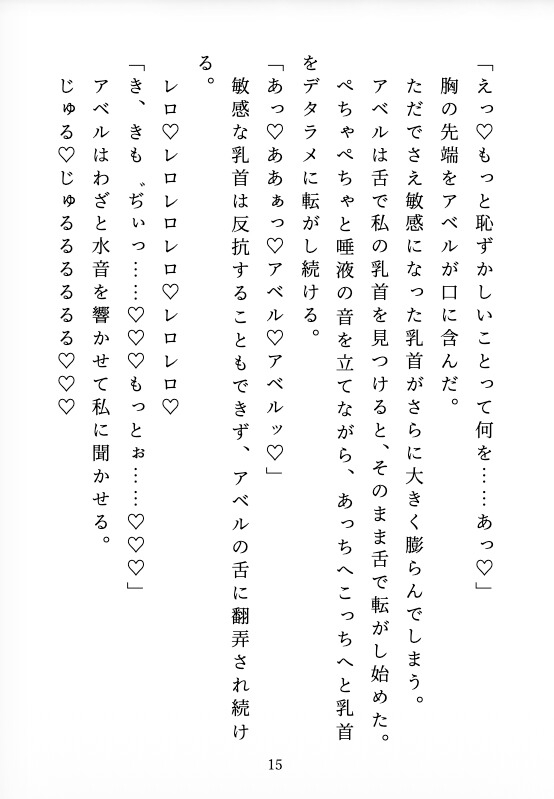 「えっ♡もっと恥ずかしいことって何を……あっ♡」
胸の先端をアベルが口に含んだ。
ただでさえ敏感になった乳首がさらに大きく膨らんでしまう。
アベルは舌で私の乳首を見つけると、そのまま舌で転がし始めた。
ぺちゃぺちゃと唾液の音を立てながら、あっちへこっちへと乳首
をデタラメに転がし続ける。
「あっ♡ああぁっ♡アベル♡アベルッ♡」
敏感な乳首は反抗することもできず、アベルの舌に翻弄され続け
る。
レロ♡レロレロレロ♡レロレロ♡
「き、きも゛ぢぃっ……♡♡♡もっとぉ……♡♡♡」
アベルはわざと水音を響かせて私に聞かせる。
じゅる♡じゅるるるるるる♡♡♡
15